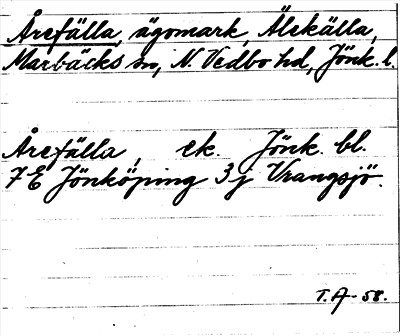 Årefälla, ägomark, Älekälla,
Marbäcks sn, N. Vedbo hd, Jönk. l.
Årefälla, ek. Jönk. bl.
7 E Jönköping 3 j Vrangsjö.
T. A - 58.